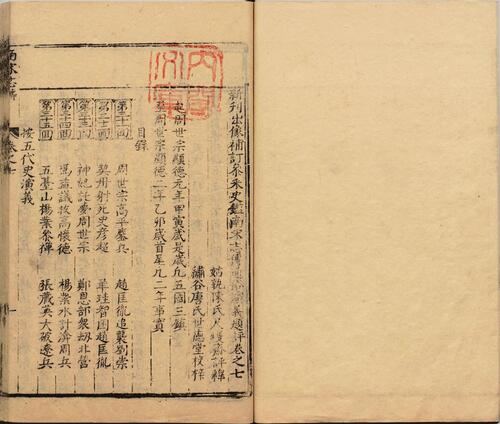 新刊出像補訂參采史鑑南宋志傳通俗演義題評卷之七
姑孰陳氏尺蠖齋評釋
繡谷唐氏世德堂校梓
起周世宗顯德元年甲寅歲是歲凡五國三鎮
至周世宗顯德二年乙卯歲首尾凡二年事實
目錄
第三十一回 周世宗高平鏖兵 趙匡胤追襲劉崇
第三十二回 契丹射死史彥超 華珪智困趙匡胤
第三十三回 神妃託夢周世宗 鄭恩部眾劫北營
第三十四回 馬益議救高懷德 楊業水計淹周兵
第三十五回 五臺山楊業參禪 張藏英大破遼兵
按五代史演義
卷之七
一